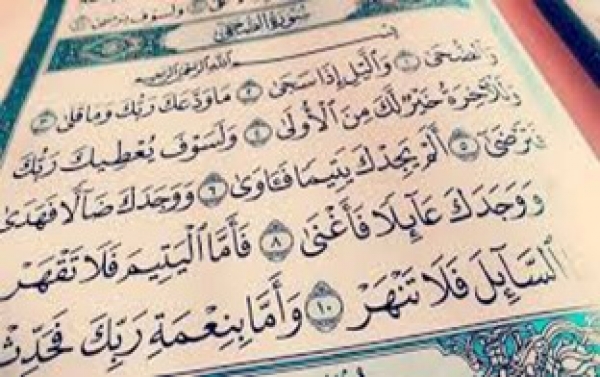 وَلَسَوْفَ يَرْضَىٰ
سُورَةُ الضُّحَىٰ
بِسْمِ اللَّهِ الرَّحْمَٰنِ الرَّحِيمِ
وَالضُّحَىٰ ١ وَالَّيْلِ إِذَا سَجَىٰ ٢ مَا وَدَّعَكَ رَبُّكَ وَمَا قَلَىٰ ٣
وَلَلْآخِرَةُ خَيْرٌ لَّكَ مِنَ الْأُولَىٰ ٤ وَلَسَوْفَ يُعْطِيكَ رَبُّكَ
فَتَرْضَىٰ ٥ أَلَمْ يَجِدْكَ يَتِيمًا فَـَٔاوَىٰ ٦ وَوَجَدَكَ ضَآلًّا فَهَدَىٰ
وَوَجَدَكَ عَآئِلًا فَأَغْنَىٰ ٨ فَأَمَّا الْيَتِيمَ فَلَا تَقْهَرْ
السَّآئِلَ فَلَا تَنْهَرْ ١٠ وَأَمَّا بِنِعْمَةِ رَبِّكَ فَحَدِّثْ